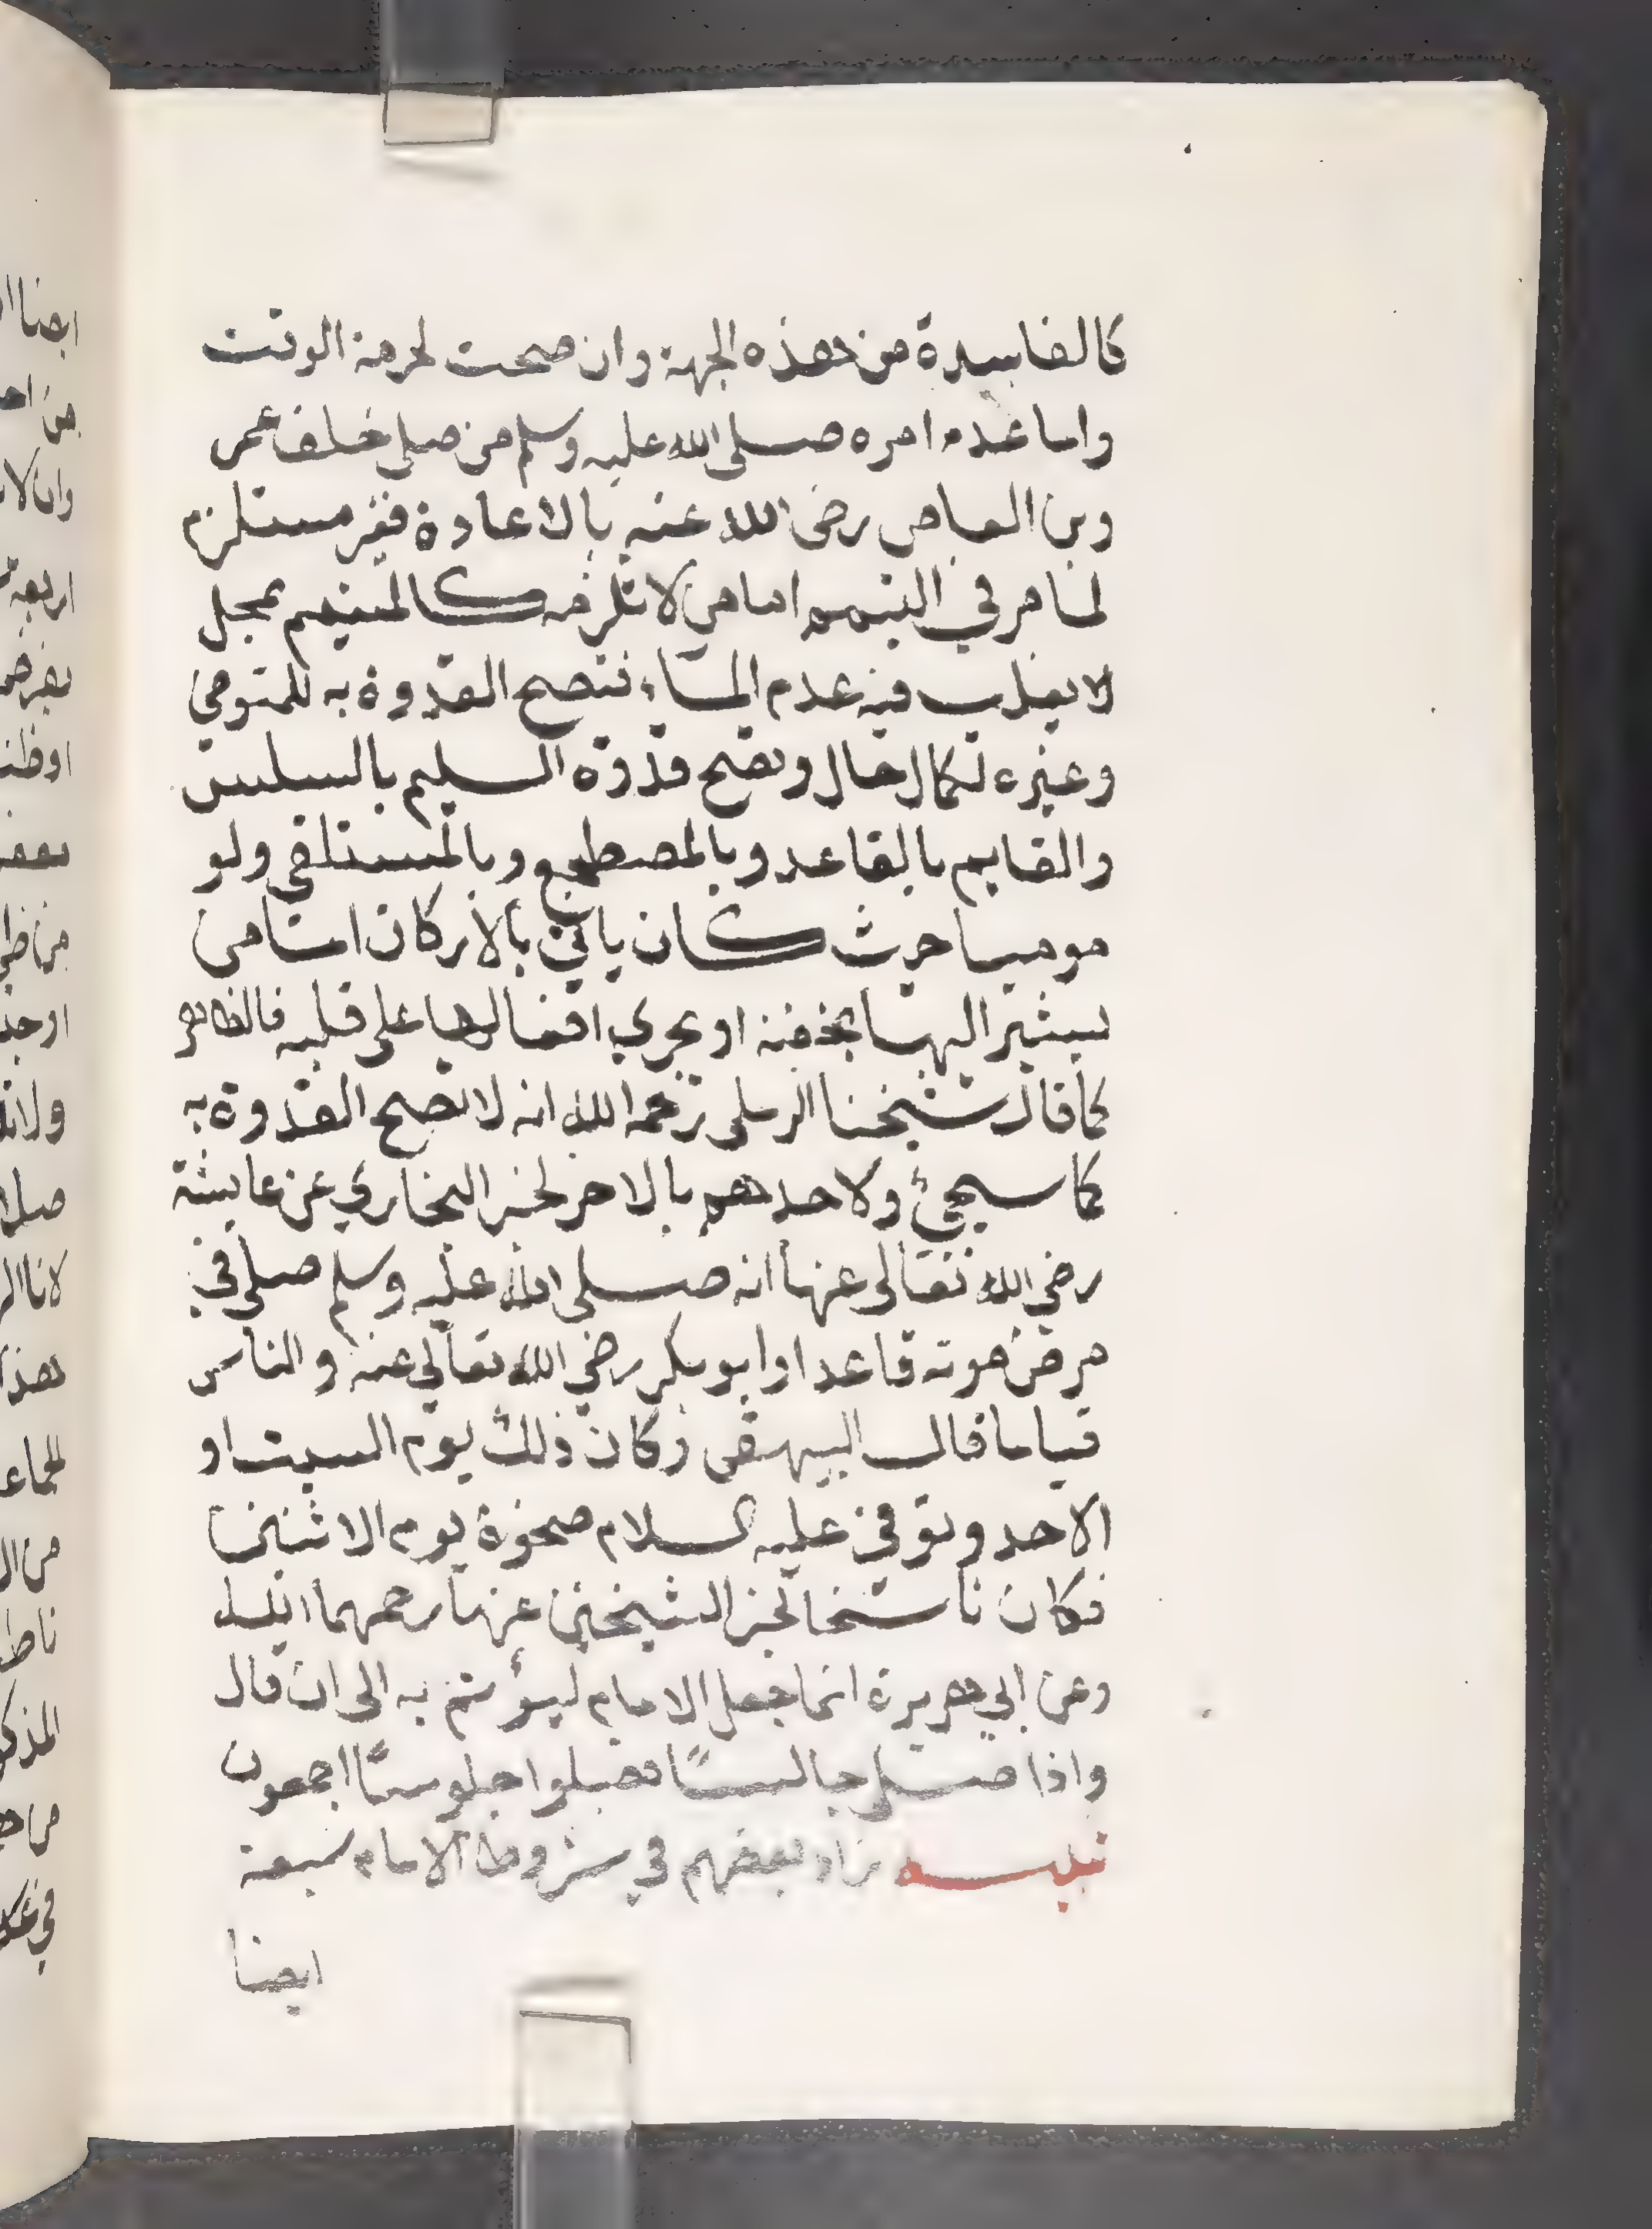 كالفاسدة من هذه الجهة وان صحت لحرمة الوقت
واما عدم امره صلى الله عليه وسلم من صلى خلف عمر
وبن العاص رضى الله عنه بالاعادة فغير مستلزم
لما مر في التيمم اما من لا تلزمه كالمتيمم بمحل
لا يغلب فيه عدم الماء فتصح القدوة به للمتوضي
وغيره لكمال حال وتصح قدوة السليم بالسلس
والقايم بالقاعد وبالمضطجع وبالمستلقى ولو
موميا حيث كان ياتي بالاركان اما من
يشير اليها بجفنه او يجري افعالها على قلبه فالظاهر
كما قال شيخنا الرملى رحمه الله انه لا تصح القدوة به
كما سيجئ ولاحدهم بالاخر لخبر البخاري عن عايشة
رضي الله تعالى عنها انه صلى الله عليه وسلم صلى في
مرض موته قاعدا وابو بكر رضي الله تعالى عنه والناس
قياما قال البيهقى وكان ذلك يوم السبت او
الاحد وتوفى عليه السلام ضحوة يوم الاثنين
فكان ناسخا لخبر الشيخين عنها رحمهما الله
وعن ابي هريرة انما جعل الامام ليؤتم به الى ان قال
واذا صلى جالسًا فصلوا جلوسًا اجمعون
تنبيه زاد بعضهم في شروط الامام سبعة
ايضا